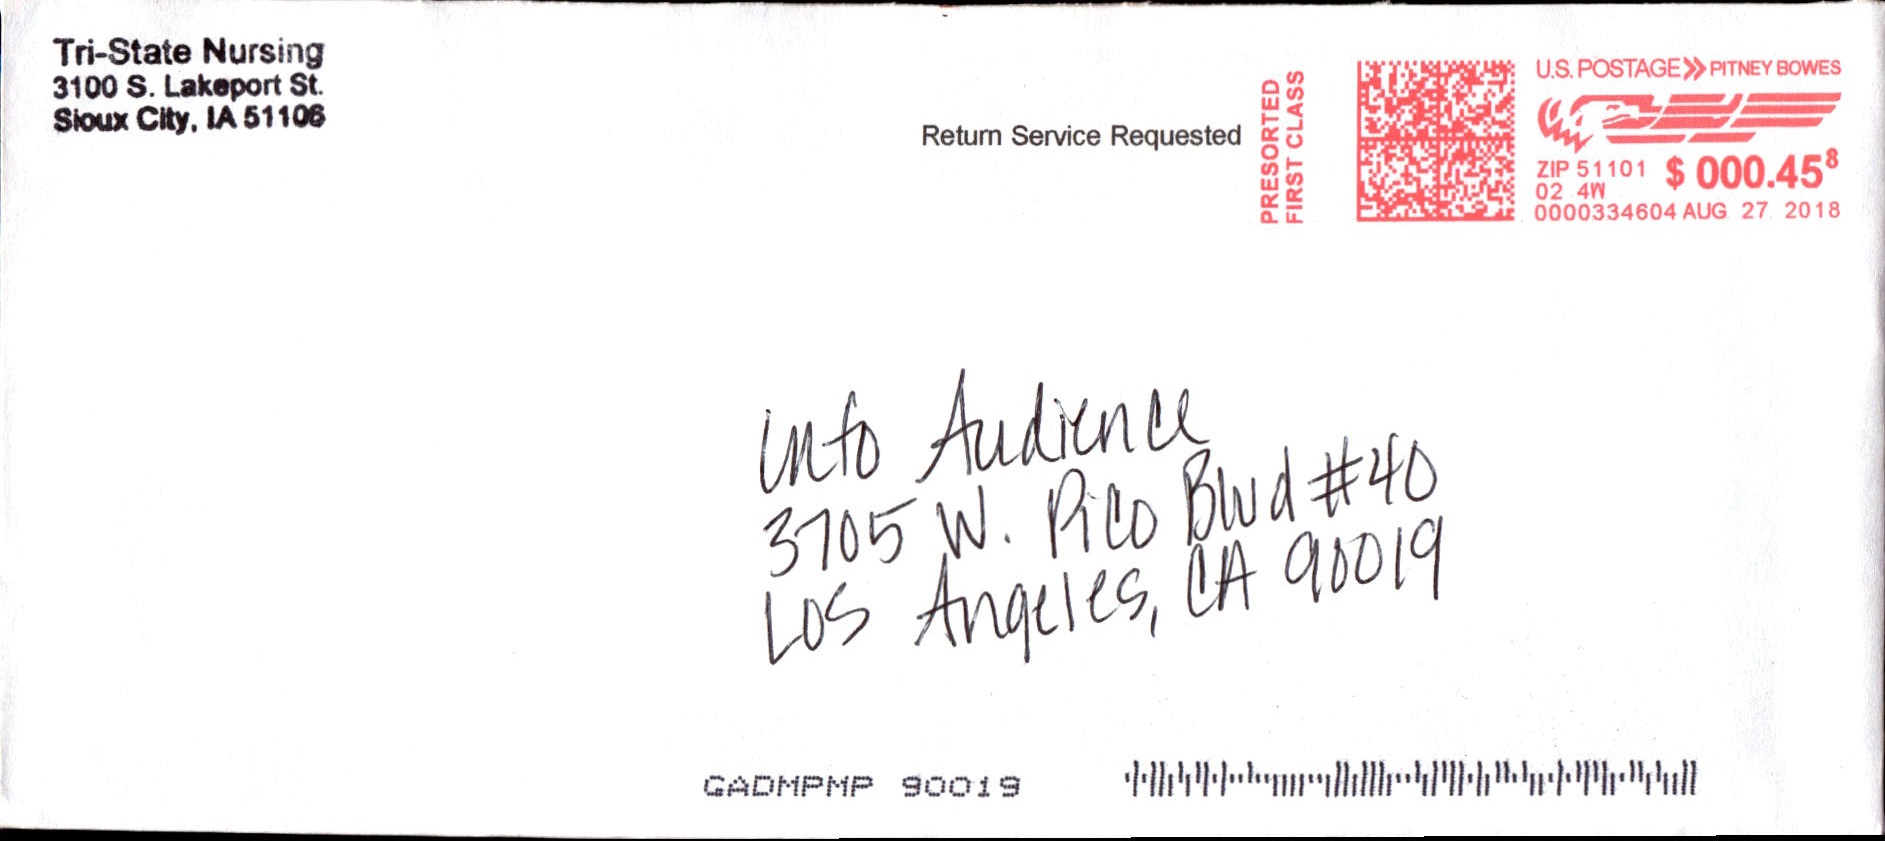 Tri-State Nursing
3100 S. Lakeport St.
Sioux City, IA 51106
Return Service Requested
PRESORTED
FIRST CLASS
U.S. POSTAGE PITNEY BOWES
ZIP 51101 $ 000.45⁸
02 4W
0000334604 AUG 27 2018
Info Audience
3705 W. Pico Blvd #40
Los Angeles, CA 90019
GADMPMP 90019